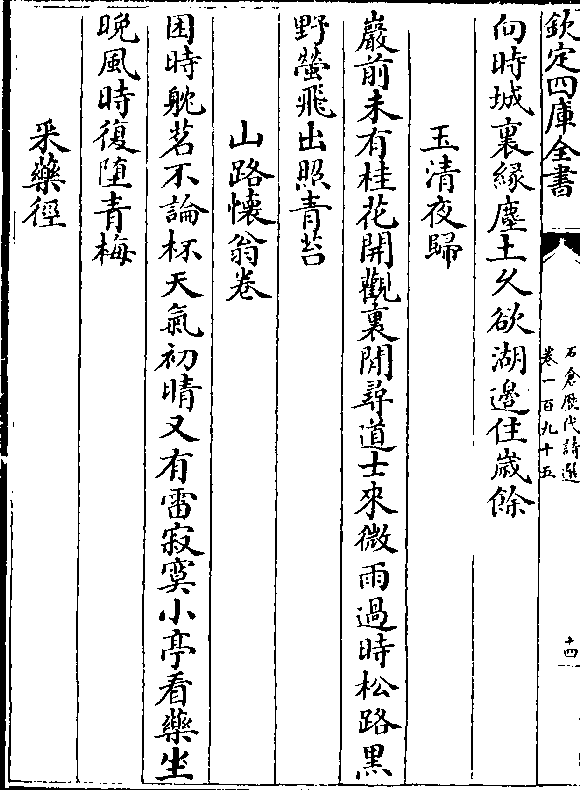 欽定四庫全書
石倉歴代詩選
卷一百九十五
十四
向時城裏緣塵土久欲湖邉住歲餘
玉清夜歸
巖前未有桂花開觀裏閒尋道士來微雨過時松路黑
野螢飛出照青苔
山路懷翁卷
困時躭茗不論杯天氣初晴又有雷寂寞小亭看藥坐
晚風時復墮青梅
采藥徑